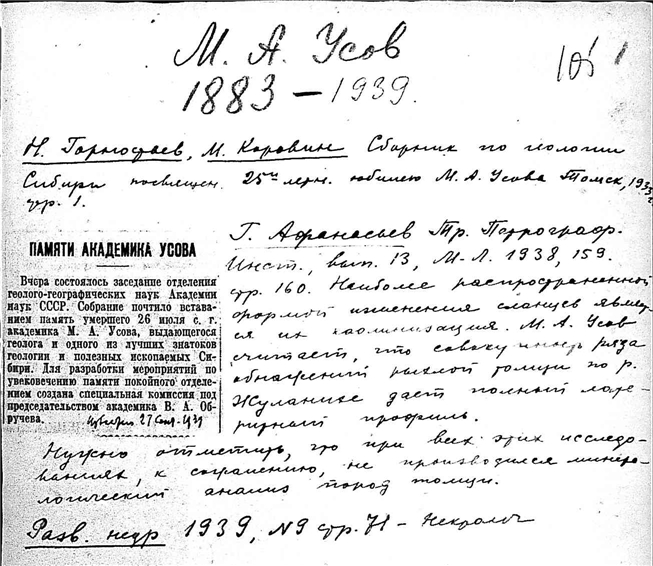 М. А. Усов
1883 – 1939.
105 1
Н. Горностаев, М. Коровин Сборник по геологии
Сибири посвящен. 25ти летн. юбилею М. А. Усова Томск, 1933 г
стр. 1.
ПАМЯТИ АКАДЕМИКА УСОВА
Вчера состоялось заседание отделения
геолого-географических наук Академии
наук СССР. Собрание почтило встава-
нием память умершего 26 июля с. г.
академика М. А. Усова, выдающегося
геолога и одного из лучших знатоков
геологии и полезных ископаемых Си-
бири. Для разработки мероприятий по
увековечению памяти покойного отделе-
нием создана специальная комиссия под
председательством академика В. А. Об-
ручева.
Известия 27 Сент-1939
Г. Афанасьев Тр. Петрограф.
Инст., вып. 13, М-Л. 1938, 159.
стр. 160. Наиболее распространенной
формой изменения сланцев являет-
ся их каолинизация. М. А. Усов
считает, что совокупность ряда
обнажений рыхлой толщи по р.
Жуланихе дает полный лате-
ритный профиль.
Нужно отметить, что при всех этих исследо-
ваниях, к сожалению, не производился минера-
логический анализ пород толщи.
Разв. недр 1939, №9 стр. 71 – Некролог